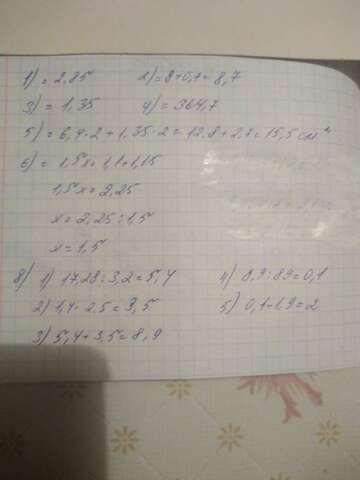 1) = 2,85 2) = 8+0,7 = 8,7
3) = 1,35 4) = 364,7
5) = 6,4·2 + 1,35·2 = 12,8 + 2,7 = 15,5 см
6) = 1,5x = 1,1 + 1,15
1,5x = 2,25
x = 2,25 : 1,5
x = 1,5
8) 1) 17,28 : 3,2 = 5,4 4) 8,9 : 89 = 0,1
2) 1,4 · 2,5 = 3,5 5) 0,1 + 1,9 = 2
3) 5,4 + 3,5 = 8,9